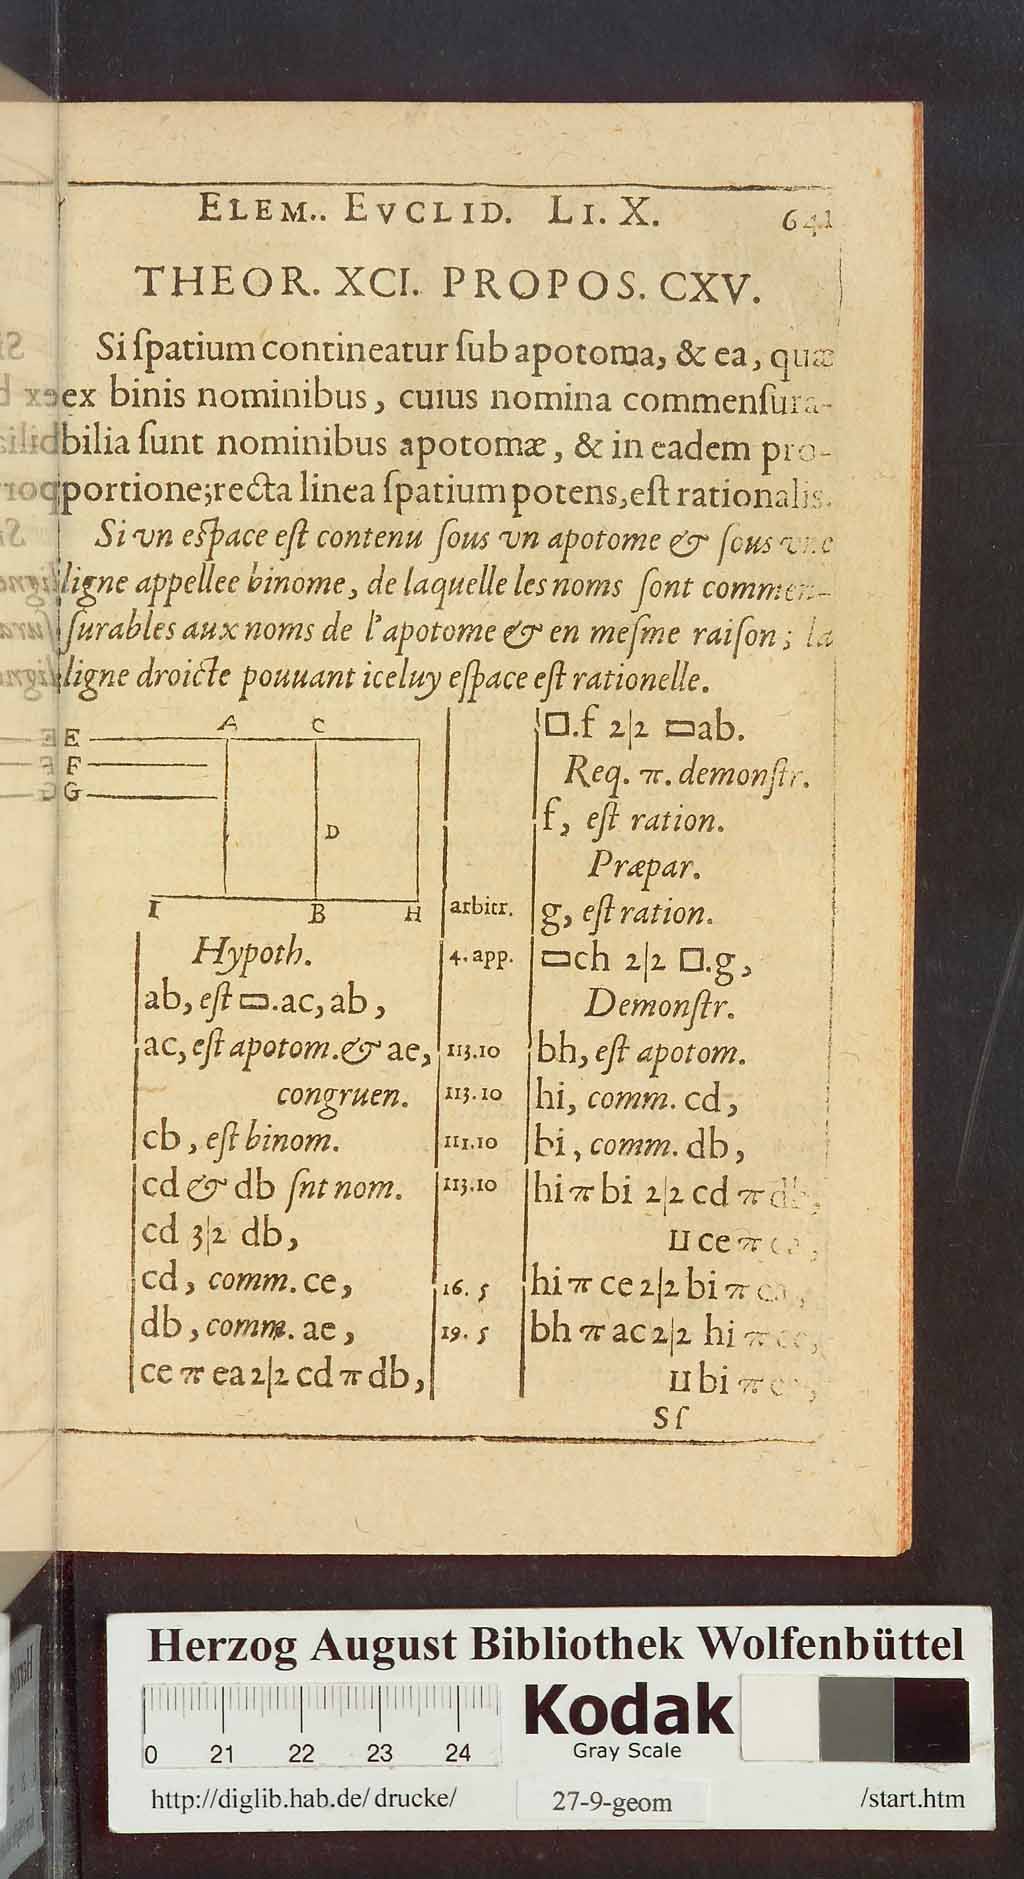 ELEM.. EVCLID. LI. X. 641
THEOR. XCI. PROPOS. CXV.
Si ſpatium contineatur ſub apotoma, & ea, quæ
ex binis nominibus, cuius nomina commenſura-
bilia ſunt nominibus apotomæ, & in eadem pro-
portione; recta linea ſpatium potens, eſt rationalis.
Si vn eſpace eſt contenu ſous vn apotome & ſous vne
ligne appellee binome, de laquelle les noms ſont commen-
ſurables aux noms de l'apotome & en meſme raiſon; la
ligne droicte pouuant iceluy eſpace eſt rationelle.
A C
E
F
G
D
I B H
Hypoth.
ab, eſt ▭.ac, ab,
ac, eſt apotom. & ae,
congruen.
cb, eſt binom.
cd & db ſnt nom.
cd 3|2 db,
cd, comm. ce,
db, comm. ae,
ce π ea 2|2 cd π db,
□.f 2|2 ▭ab.
Req. π. demonſtr.
f, eſt ration.
Præpar.
arbitr. g, eſt ration.
4. app. ▭ch 2|2 □.g,
Demonſtr.
113.10 bh, eſt apotom.
113.10 hi, comm. cd,
111.10 bi, comm. db,
113.10 hi π bi 2|2 cd π db,
⊔ ce π ea,
16. 5 hi π ce 2|2 bi π ea,
19. 5 bh π ac 2|2 hi π ce,
⊔ bi π
Sſ
Herzog August Bibliothek Wolfenbüttel
0 21 22 23 24
Kodak
Gray Scale
http://diglib.hab.de/drucke/ 27-9-geom /start.htm